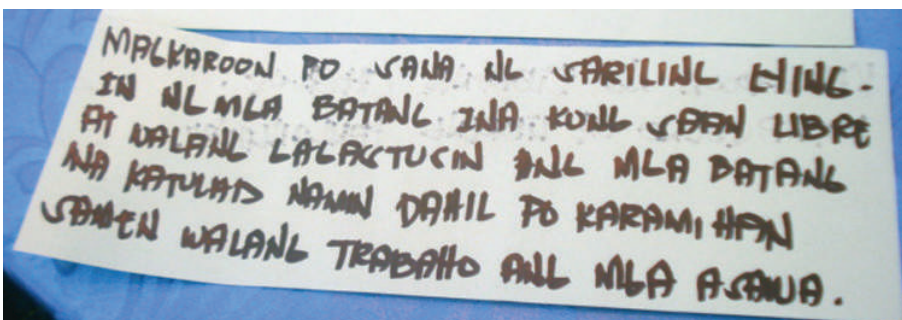 MAGKAROON PO SANA NG SARILING LYING-
IN NG MGA BATANG INA KUNG SAAN LIBRE
AT WALANG GAGASTUSIN ANG MGA BATANG
INA KATULAD NAMIN DAHIL PO KARAMIHAN
SAMEN WALANG TRABAHO ANG MGA ASAWA.